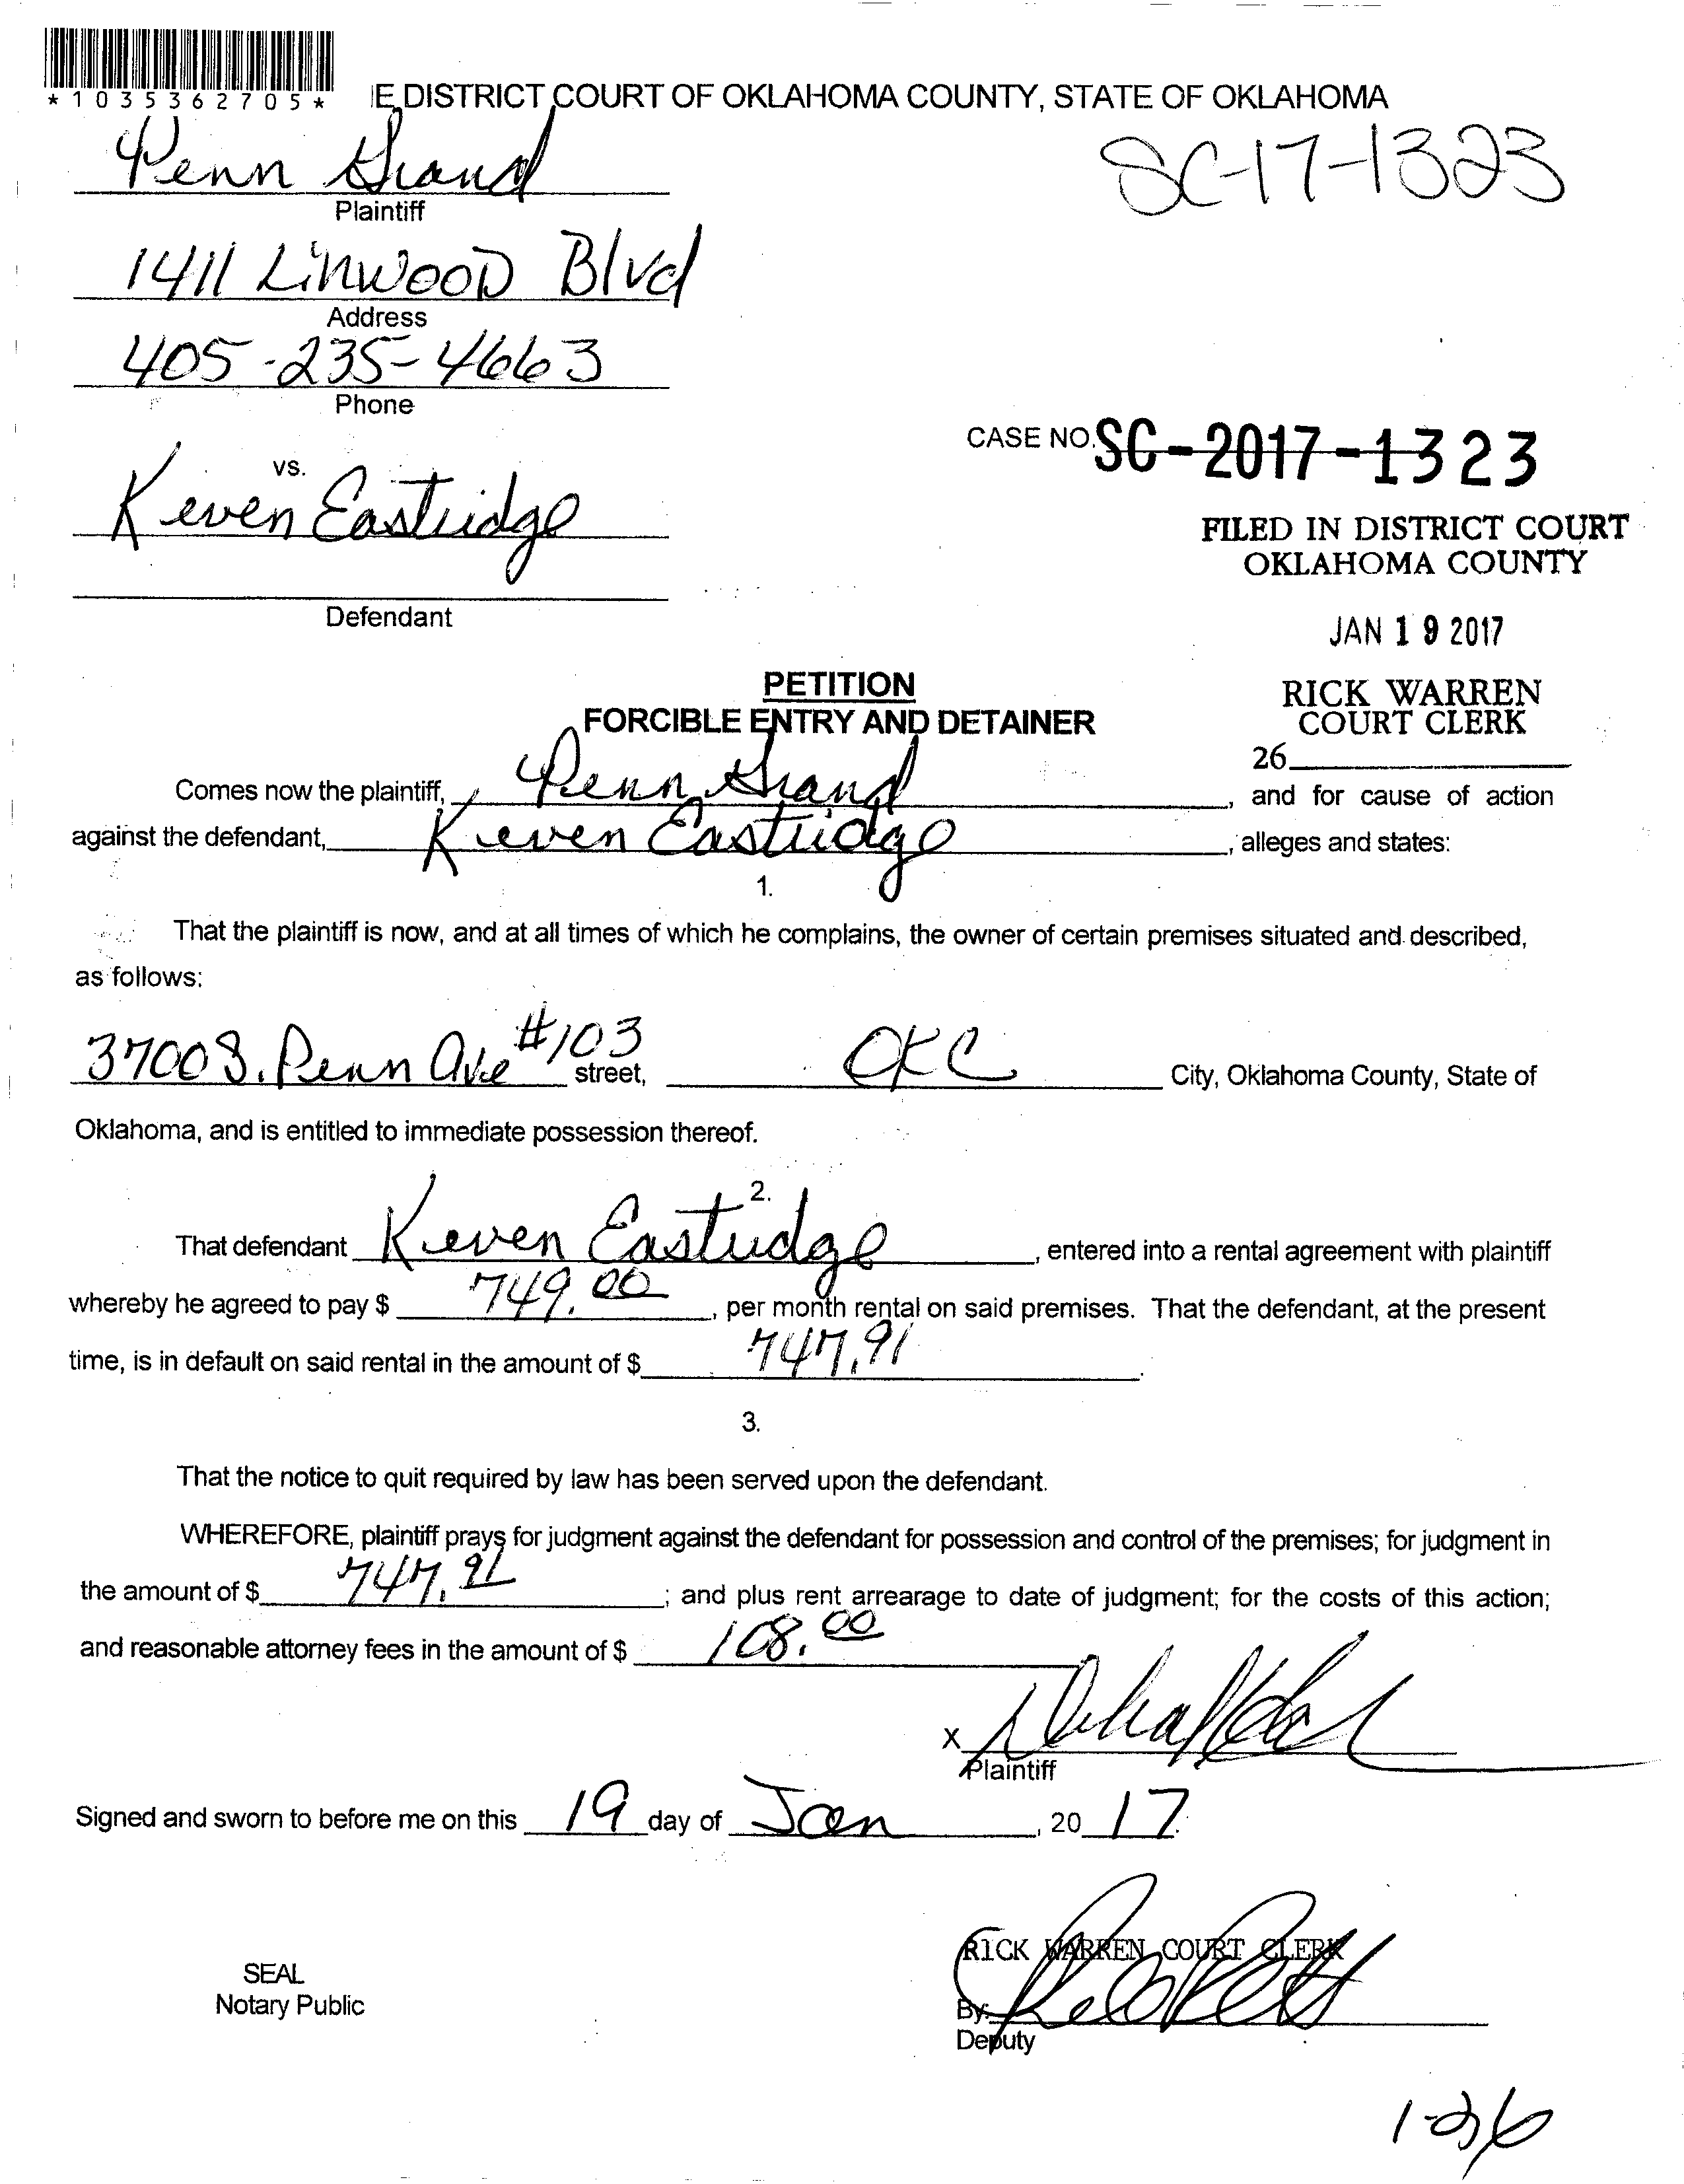 *1035362705*
E DISTRICT COURT OF OKLAHOMA COUNTY, STATE OF OKLAHOMA
Penn Grand
SC-17-1323
Plaintiff
1411 Linwood Blvd
Address
405-235-4663
Phone
CASE NO. SC-2017-1323
vs.
Keven Eastridge
FILED IN DISTRICT COURT
OKLAHOMA COUNTY
Defendant
JAN 19 2017
PETITION
RICK WARREN
FORCIBLE ENTRY AND DETAINER
COURT CLERK
26
Comes now the plaintiff, Penn Grand, and for cause of action
against the defendant, Keven Eastridge, alleges and states:
1.
That the plaintiff is now, and at all times of which he complains, the owner of certain premises situated and described,
as follows:
3700 S. Penn Ave #103 street, OKC City, Oklahoma County, State of
Oklahoma, and is entitled to immediate possession thereof.
2.
That defendant Keven Eastridge, entered into a rental agreement with plaintiff
whereby he agreed to pay $ 749.00, per month rental on said premises. That the defendant, at the present
time, is in default on said rental in the amount of $ 747.91.
3.
That the notice to quit required by law has been served upon the defendant.
WHEREFORE, plaintiff prays for judgment against the defendant for possession and control of the premises; for judgment in
the amount of $ 747.91; and plus rent arrearage to date of judgment; for the costs of this action;
and reasonable attorney fees in the amount of $ 108.00
X
Plaintiff
Signed and sworn to before me on this 19 day of Jan, 20 17.
RICK WARREN COURT CLERK
SEAL
Notary Public
By:
Deputy
1-26